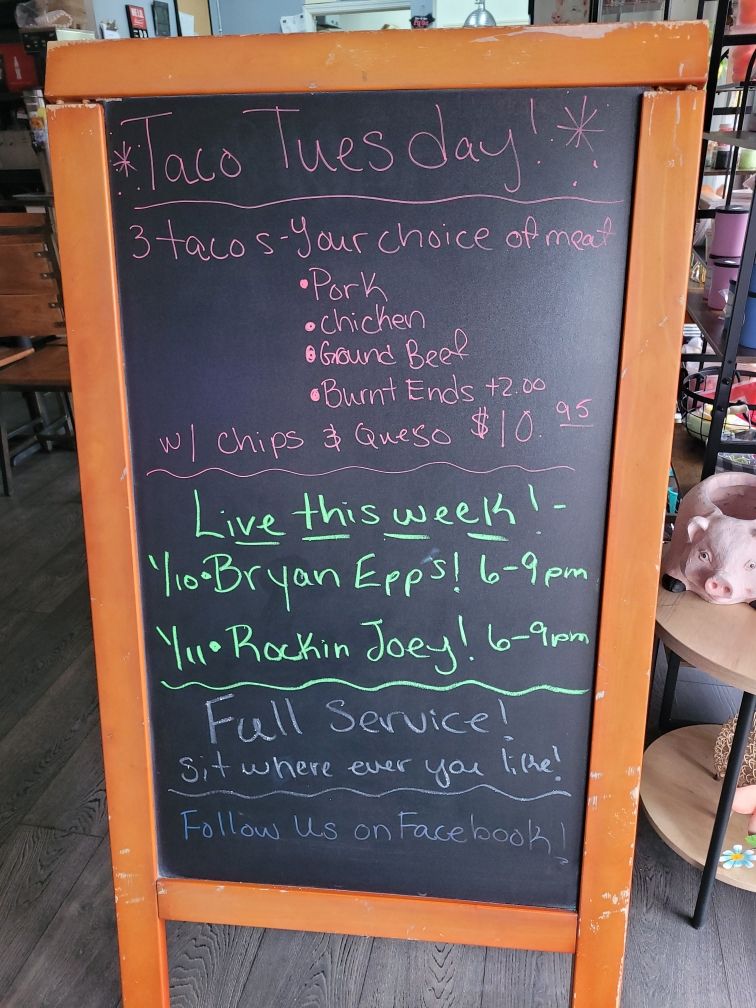 *Taco Tuesday! *
3 tacos - Your choice of meat
• Pork
• Chicken
• Ground Beef
• Burnt Ends +2.00
w/ chips & Queso $10.95
Live this week! -
1/10 • Bryan Epps! 6-9pm
1/11 • Rockin Joey! 6-9pm
Full Service!
Sit where ever you like!
Follow Us on Facebook!